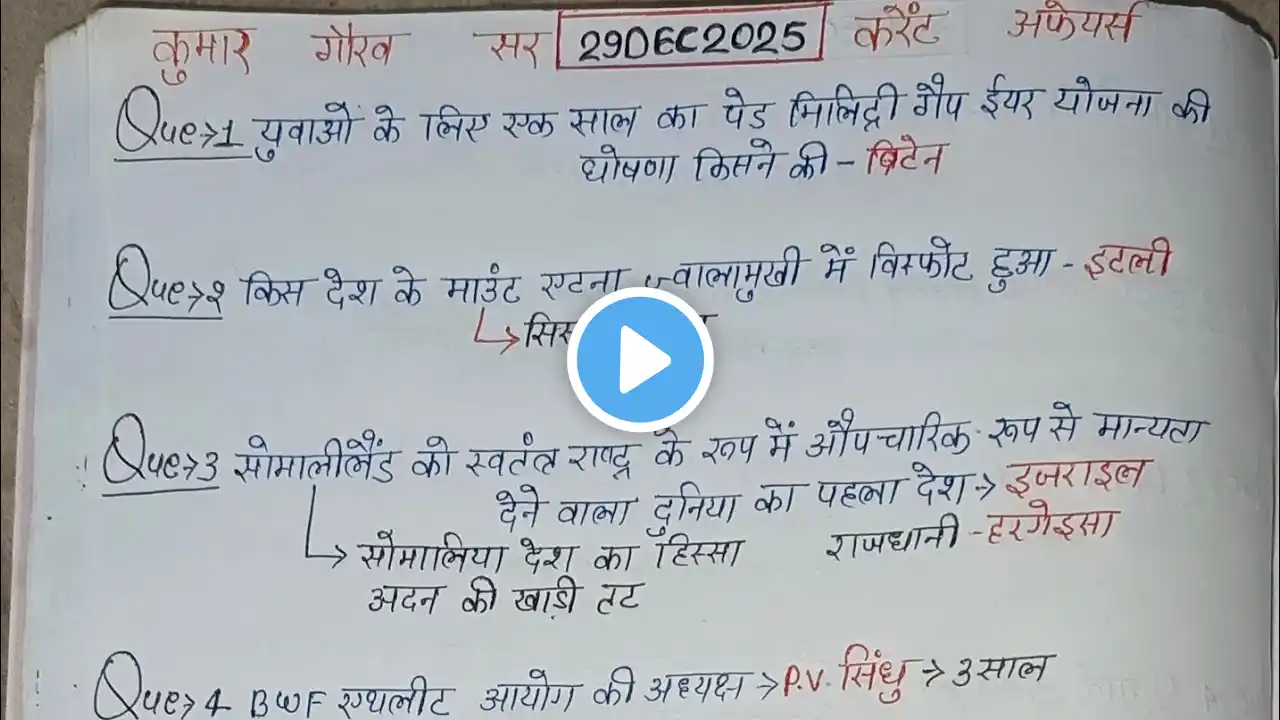 कुमार गौरव सर 29DEC2025 करेंट अफेयर्स
Que→1 युवाओं के लिए एक साल का पेड मिलिट्री गैप ईयर योजना की
घोषणा किसने की - ब्रिटेन
Que→2 किस देश के माउंट एटना ज्वालामुखी में विस्फोट हुआ - इटली
Que→3 सोमालीलैंड को स्वतंत्र राष्ट्र के रूप में औपचारिक रूप से मान्यता
देने वाला दुनिया का पहला देश→ इजराइल
→ सोमालिया देश का हिस्सा राजधानी - हरगेइसा
अदन की खाड़ी तट
Que→4 BWF एथलीट आयोग की अध्यक्ष → P.V. सिंधु → 3 साल